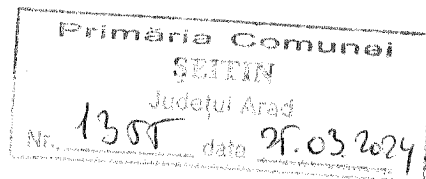 Primăria Comunei
ŞEITIN
Judeţul Arad
Nr. 1355 data 25.03.2024